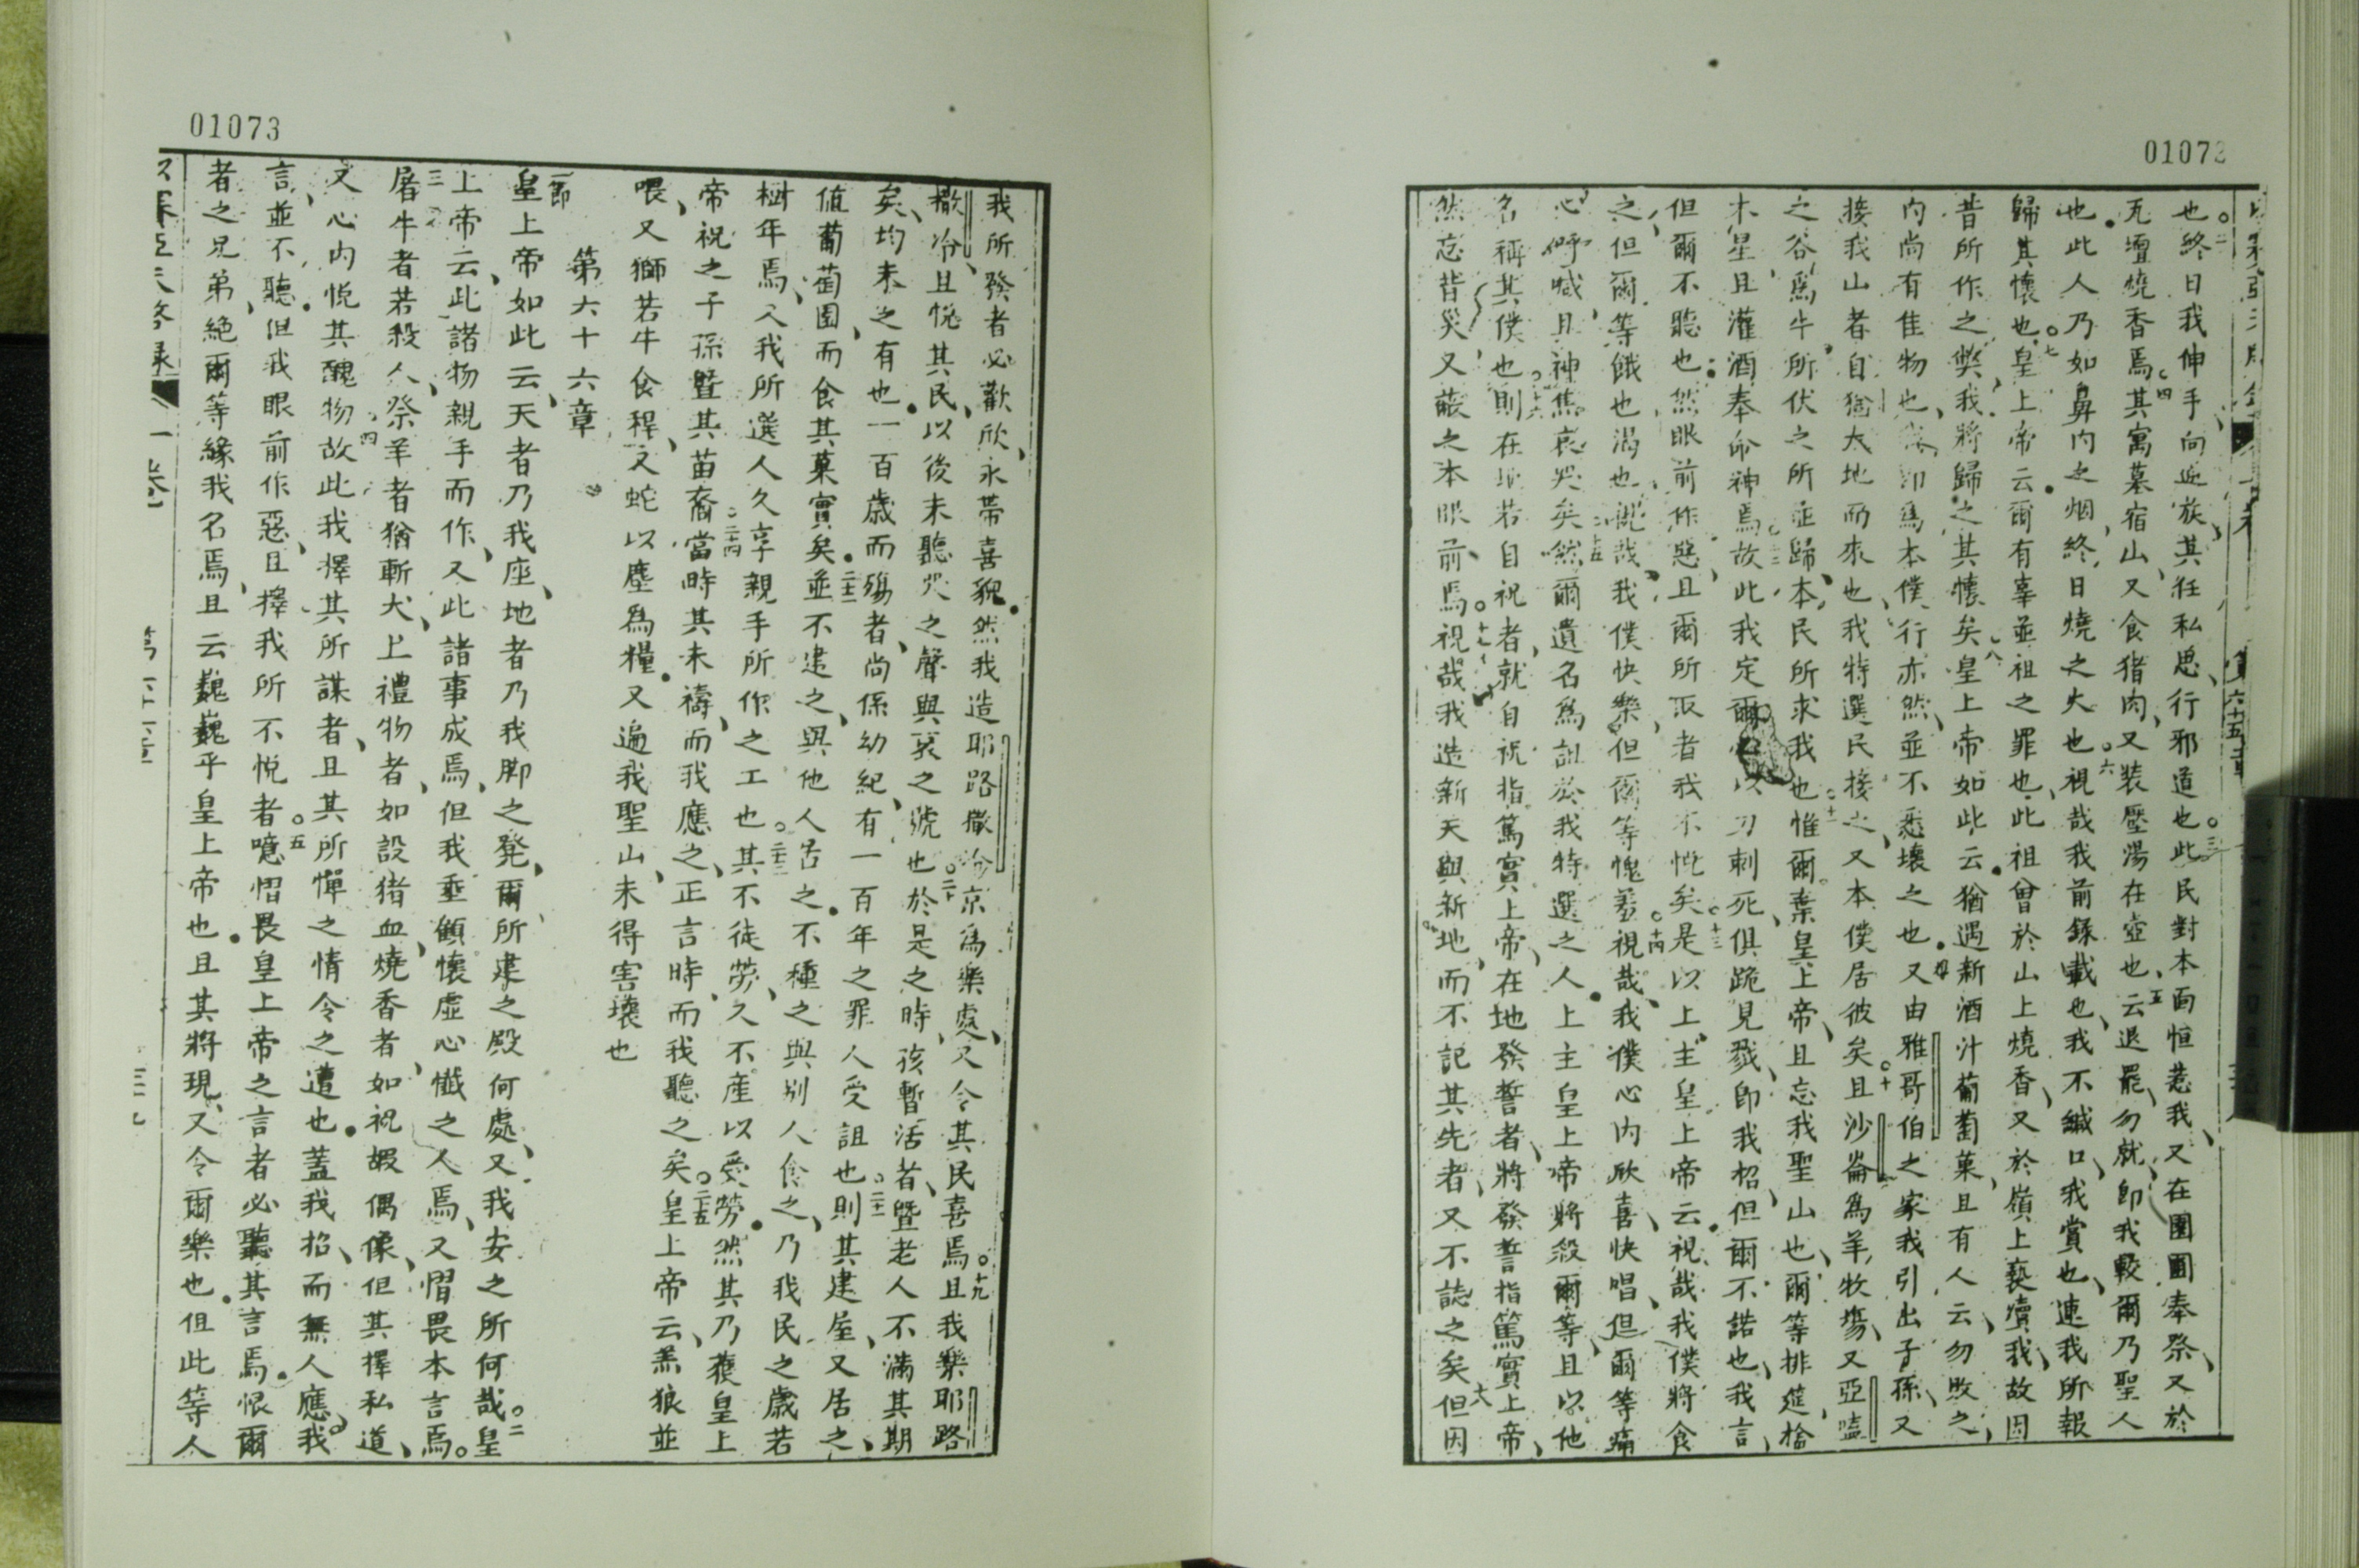 01073
也終日我伸手向逆族其狂私思行邪道也此民對本面恒惹我又在園囿奉祭又於
瓦壇燒香焉其寓墓宿山又食猪肉又裝壓湯在壺也云退罷勿就卽我較爾乃聖人
也此人乃如鼻內之烟終日燒之火也視哉我前錄載也我不緘口我賞也連我所報
歸其懷也皇上帝云爾有辜並祖之罪也此祖曾於山上燒香又於嶺上褻瀆我故因
昔所作之獘我將歸之其懷矣皇上帝如此云猶遇新酒汁葡萄菓且有人云勿敗之
內尚有隹物也 卽爲本僕行亦然並不悉壞之也又由雅哥伯之家我引出子孫又
接我山者自猶太地而來也我特選民接之又本僕居彼矣且沙崙爲羊牧塲又亞嗑
之谷爲牛所伏之所並歸本民所求我也惟爾棄皇上帝且忘我聖山也爾等排筵搶
木星且灌酒奉命神焉故此我定爾 以刀刺死俱跪見戮卽我招但爾不諾也我言
但爾不聽也然眼前作惡且爾所取者我不悅矣是以上主皇上帝云視哉我僕將食
之但爾等餓也渴也視哉我僕快樂但爾等愧羞視哉我僕心內欣喜快唱但爾等痛
心呼喊且神焦哀哭矣然爾遺名爲詛於我特選之人上主皇上帝將殺爾等且以他
名稱其僕也則在地若自祝者就自祝指篤實上帝在地發誓者將發誓指篤實上帝
然忘昔災又蔽之本眼前焉視哉我造新天與新地而不記其先者又不誌之矣但因
第六十五章
01073
我所發者必歡欣永帶喜貌然我造耶路撒冷京爲樂處又令其民喜焉且我樂耶路
撒冷且悅其民以後未聽哭之聲與哀之號也於是之時孩暫活者曁老人不滿其期
矣均未之有也一百歲而殤者尚係幼紀有一百年之罪人受詛也則其建屋又居之
値葡萄園而食其菓實矣並不建之與他人居之不種之與别人食之乃我民之歲若
樹年焉又我所選人久享親手所作之工也其不徒勞又不產以受勞然其乃獲皇上
帝祝之子孫曁其苗裔當時其未禱而我應之正言時而我聽之矣皇上帝云羔狼並
喂又獅若牛食稈又蛇以塵爲糧又遍我聖山未得害壞也
第六十六章
一節
皇上帝如此云天者乃我座地者乃我脚之凳爾所建之殿何處又我安之所何哉皇
上帝云此諸物親手而作又此諸事成焉但我垂顧懷虛心懺之人焉又慴畏本言焉
屠牛者若殺人祭羊者猶斬犬上禮物者如設猪血燒香者如祝嘏偶像但其擇私道
又心內悅其醜物故此我擇其所謀者且其所憚之情令之遭也蓋我招而無人應我
言並不聽但我眼前作惡且擇我所不悅者噫慴畏皇上帝之言者必聽其言焉恨爾
者之兄弟絶爾等緣我名焉且云巍巍乎皇上帝也且其將現又令爾樂也但此等人